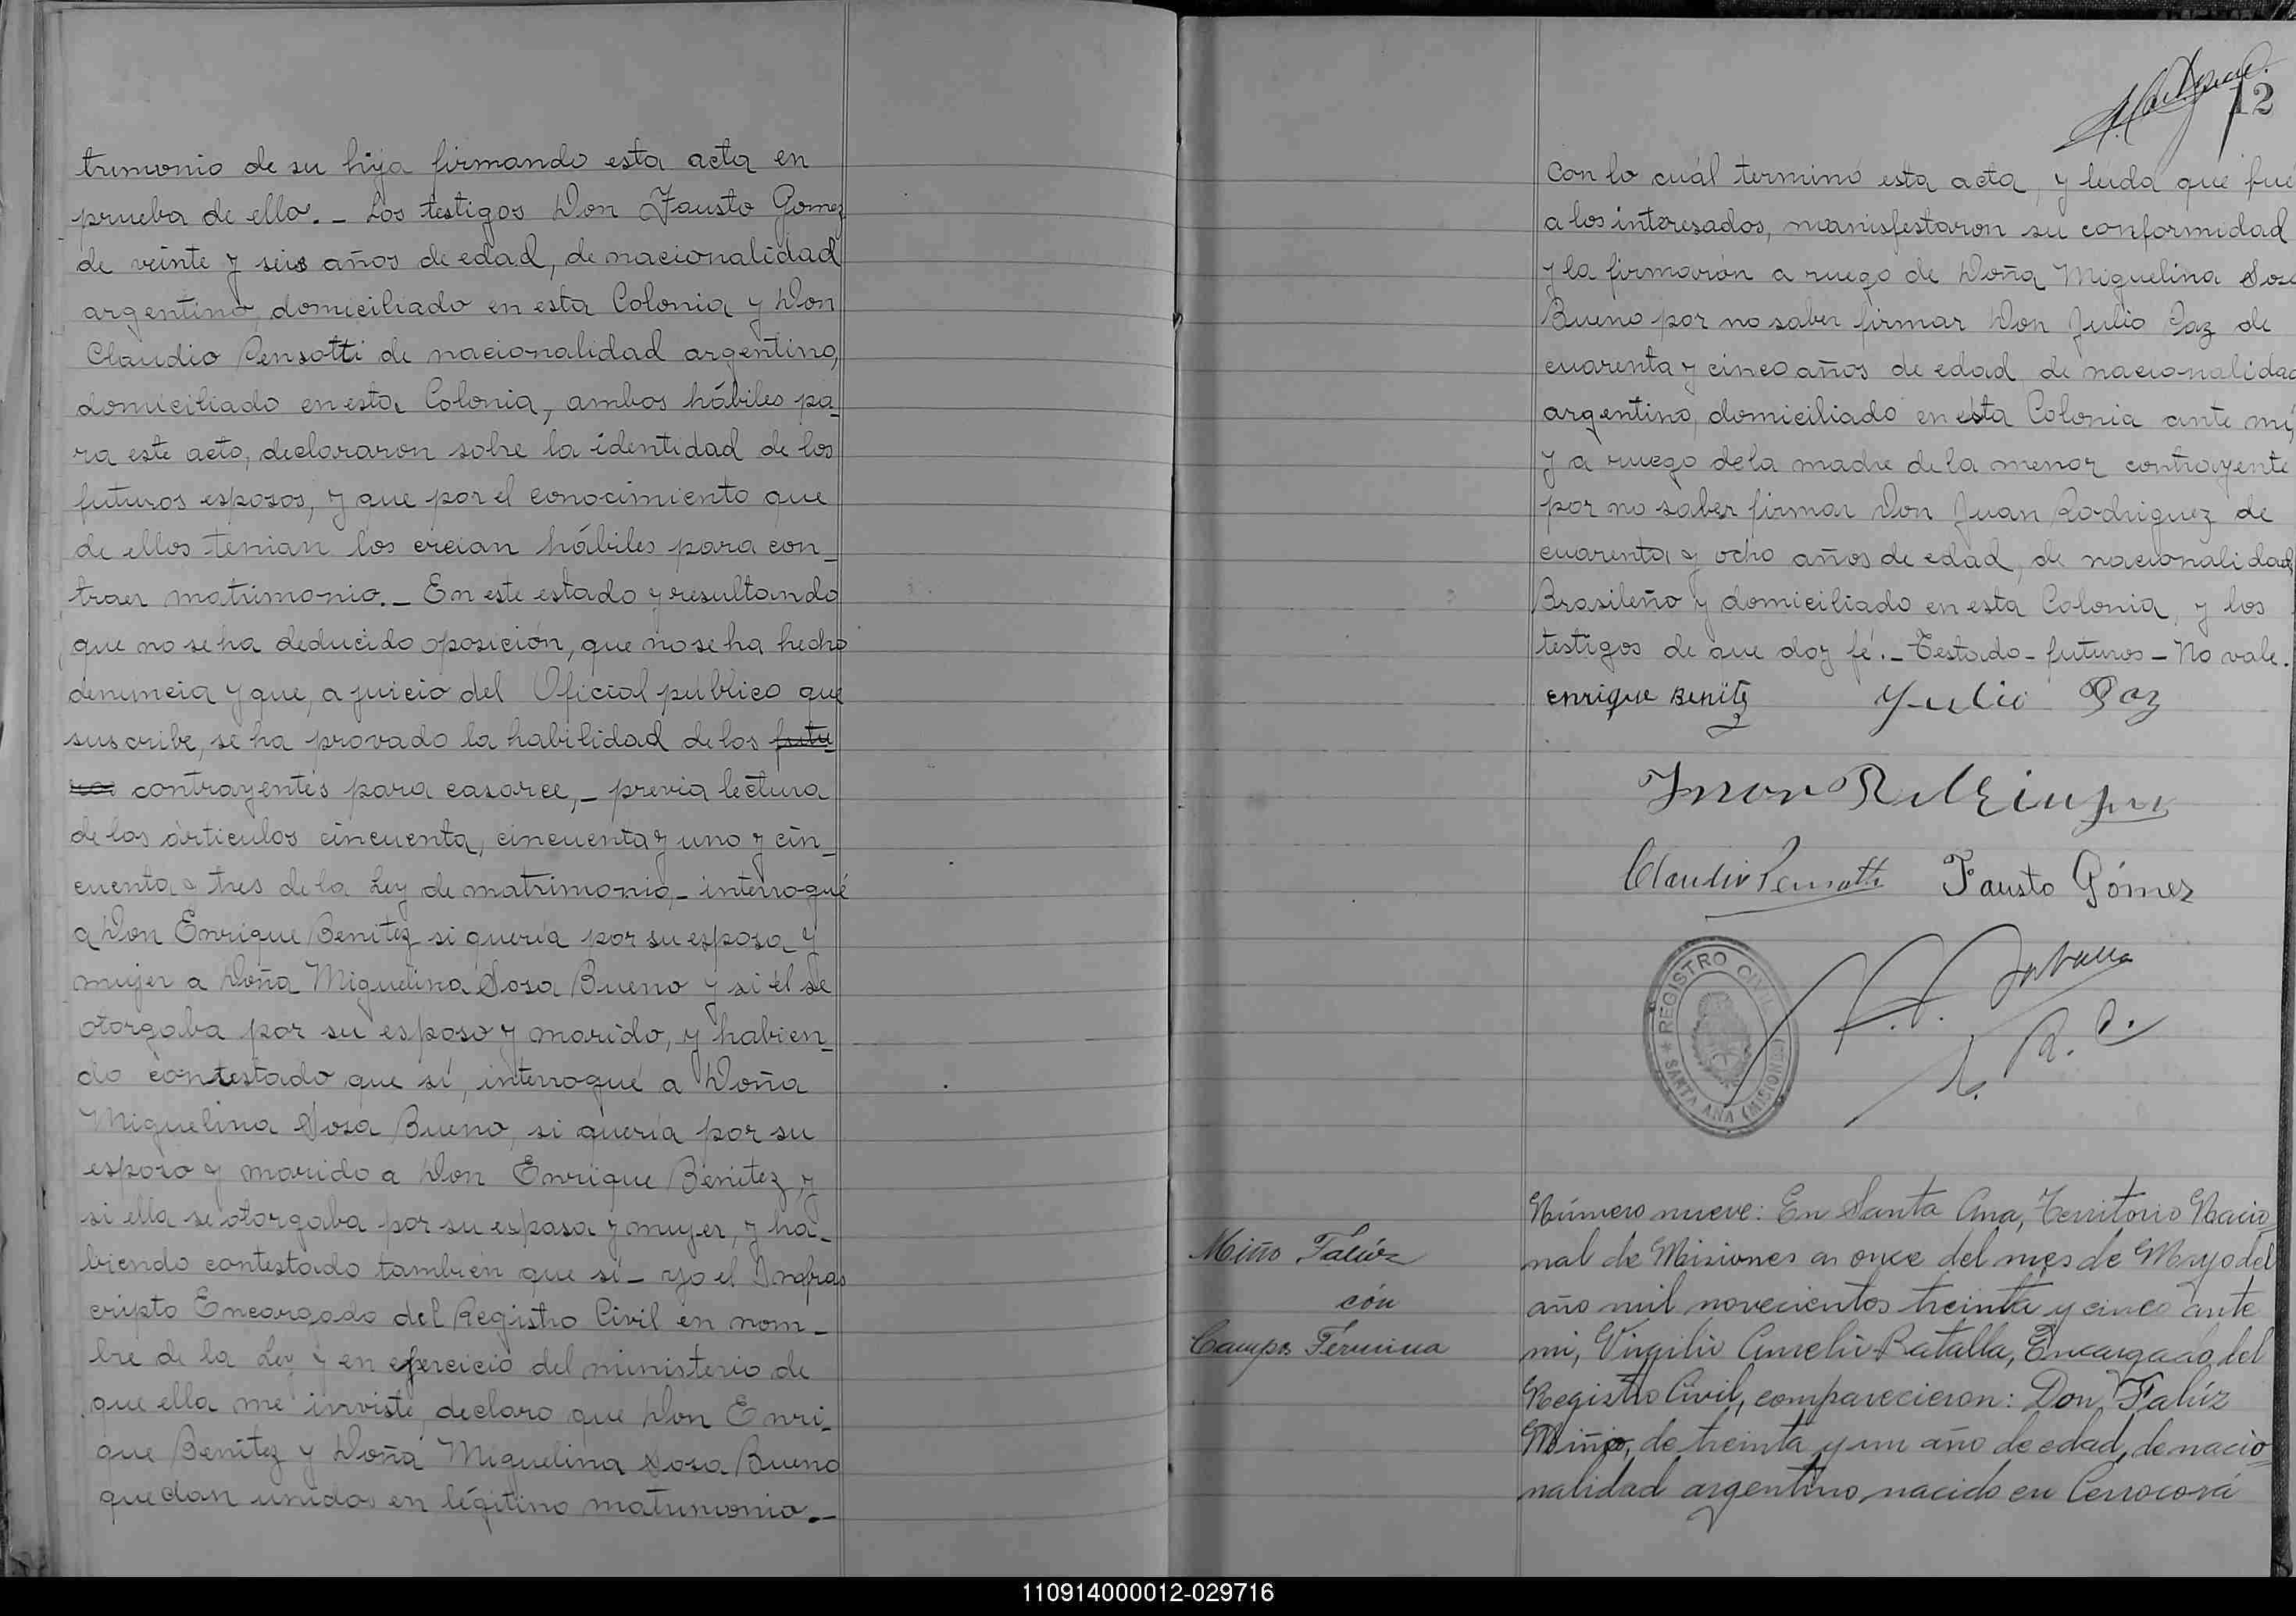 trimonio de su hija firmando esta acta en
prueba de ello. _ Los testigos Don Fausto Gomez
de veinte y seis años de edad, de nacionalidad
argentino, domiciliado en esta Colonia y Don
Claudio Pensotti de nacionalidad argentino,
domiciliado en esta Colonia, ambos hábiles pa_
ra este acto, declararon sobre la identidad de los
futuros esposos, y que por el conocimiento que
de ellos tenian los creian hábiles para con_
traer matrimonio. _ En este estado y resultando
que no se ha deducido oposición, que no se ha hecho
denuncia y que, a juicio del Oficial público que
suscribe, se ha provado la habilidad de los futu_
ros contrayentes para casarce, _ previa lectura
de los árticulos cincuenta, cincuenta y uno y cin_
cuenta y tres de la Ley de matrimonio, _ interrogué
a Don Enrique Benitez si quería por su esposa y
mujer a Doña Miguelina Sosa Bueno y si él se
otorgaba por su esposo y marido, y habien_
do contestado que sí, interrogué a Doña
Miguelina Sosa Bueno, si quería por su
esposo y marido a Don Enrique Benitez y
si ella se otorgaba por su esposa y mujer, y ha_
biendo contestado también que sí _ yo el Infras
cripto Encargado del Registro Civil en nom_
bre de la Ley y en ejercicio del ministerio de
que ella me inviste, declaro que Don Enri_
que Benitez y Doña Miguelina Sosa Bueno
quedan unidos en légitino matrimonio. _
12
Con lo cuál terminó esta acta, y leida que fué
a los interesados, manisfestaron su conformidad
y la firmarón a ruego de Doña Miguelina Sosa
Bueno por no saber firmar Don Julio Paz de
cuarenta y cinco años de edad de nacionalidad
argentino, domiciliado en ésta Colonia ante mi,
y a ruego de la madre de la menor contrayente
por no saber firmar Don Juan Rodriguez de
cuarenta y ocho años de edad, de nacionalidad
Brasileño y domiciliado en esta Colonia, y los
testigos de que doy fé. _ Testado _ futuros _ No vale.
enrique Benitez Yulio Paz
Claudio Pensotti Fausto Gómez
REGISTRO CIVIL
SANTA ANA (MISIONES)
Miño Falúz
cón
Campos Férmina
Número nueve: En Santa Ana, Territorio Nacio=
nal de Misiones a once del mes de Mayo del
año mil novecientos treinta y cinco ante
mi, Virgilio Aurelio Batalla, Encargado del
Registro Civil, comparecieron: Don Falúz
Miño, de treinta y un año de edad, de nacio=
nalidad argentino, nacido en Cerrocorá
110914000012-029716